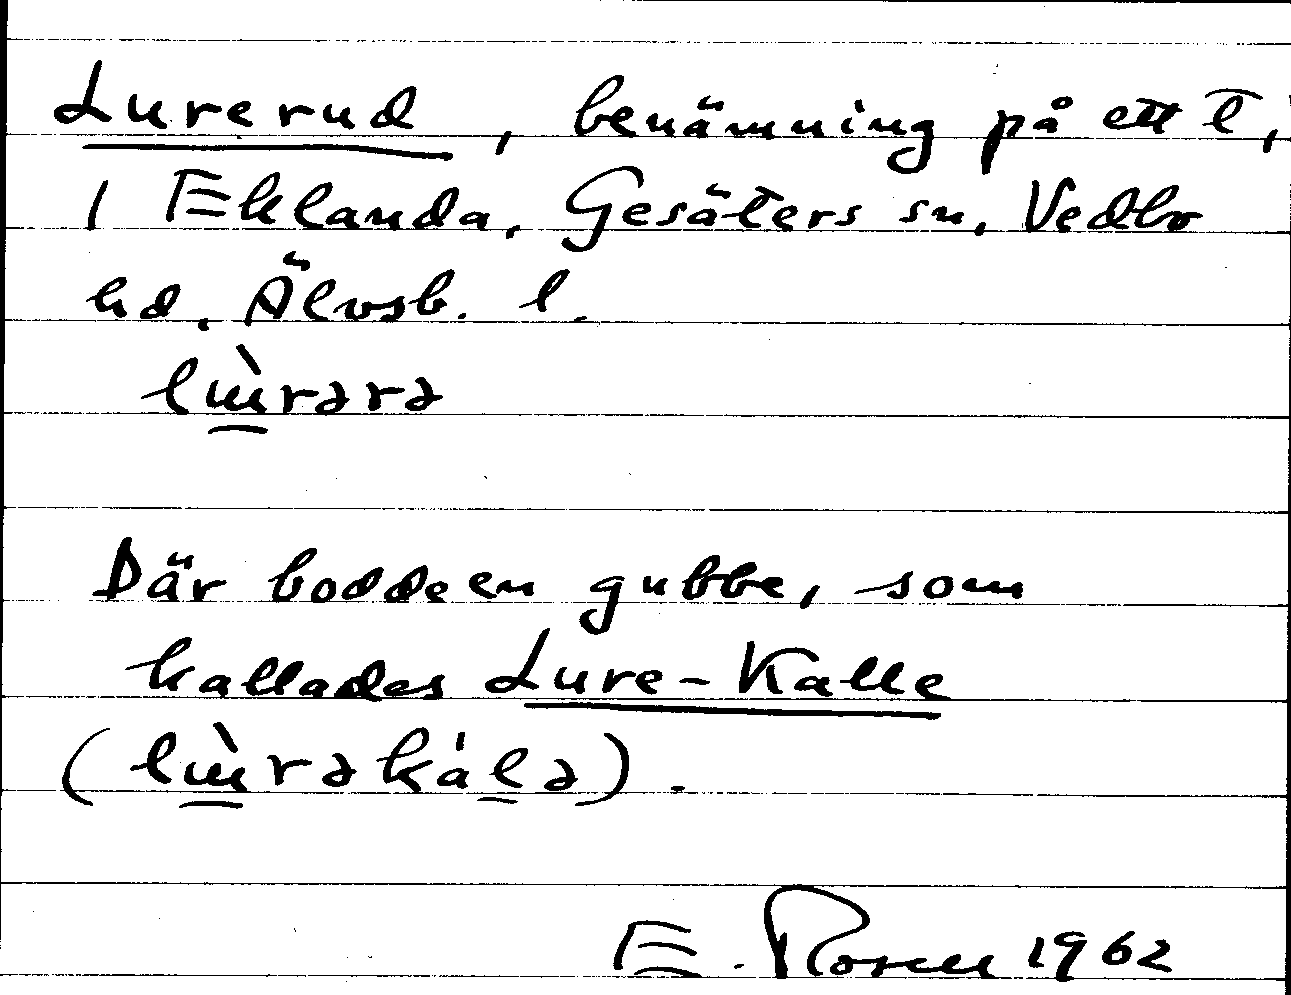 Lurerud, benämning på ett t̄,
i Eklanda, Gesäters sn, Vedbo
hd. Älvsb. l.
lɯ̀rərə
Där bodde en gubbe, som
kallades Lure-Kalle
(lɯ̀rəkálə).
E. Rosen 1962